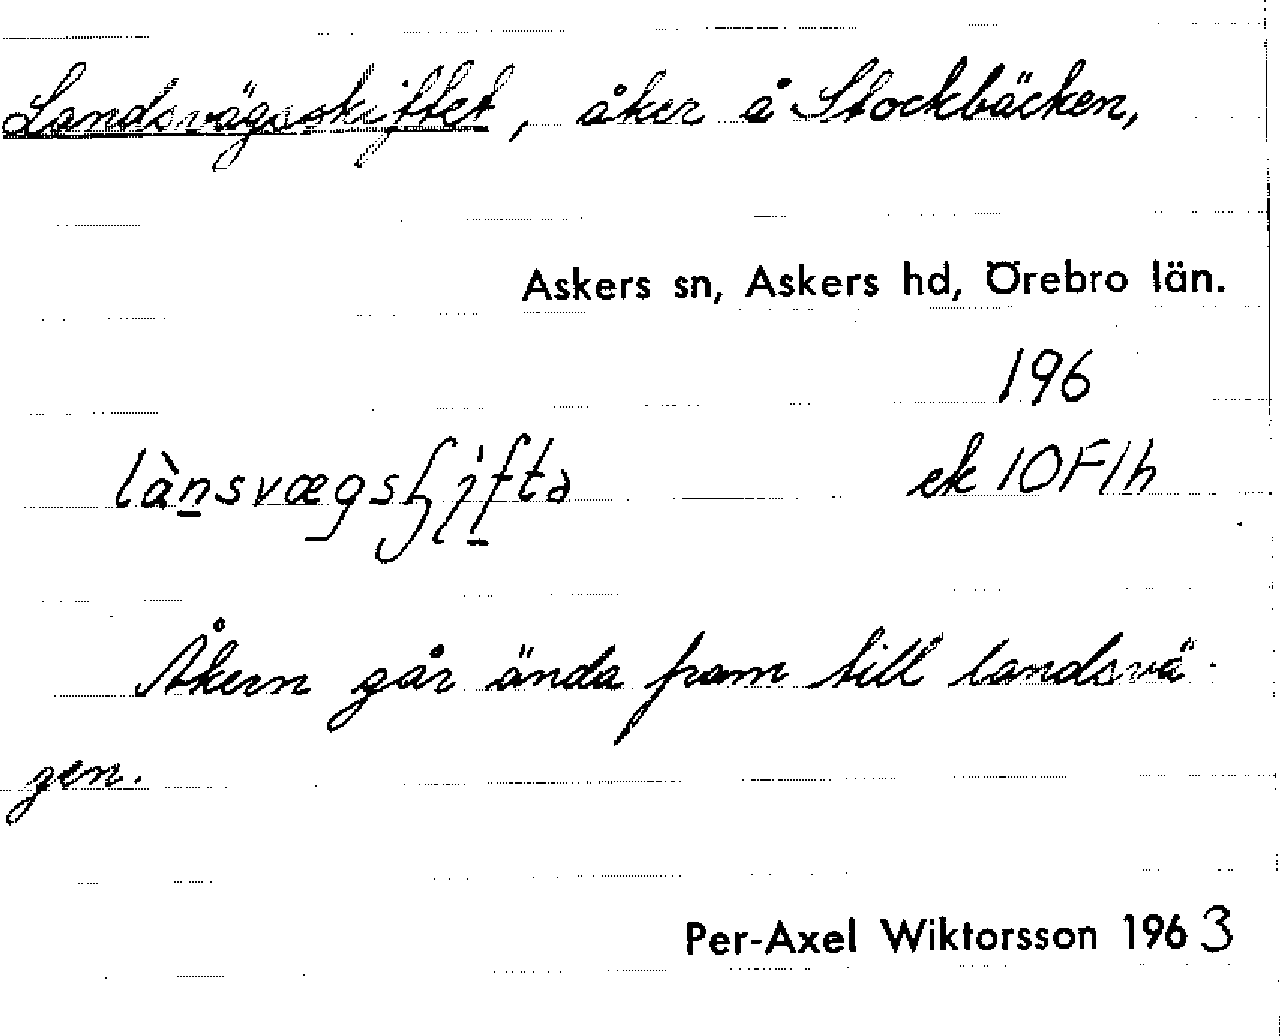 Landsvägsskiftet, åker å Stockbäcken,
Askers sn, Askers hd, Örebro län.
196
ek 10F1h
Åkern går ända fram till landsvä-
gen.
Per-Axel Wiktorsson 1963